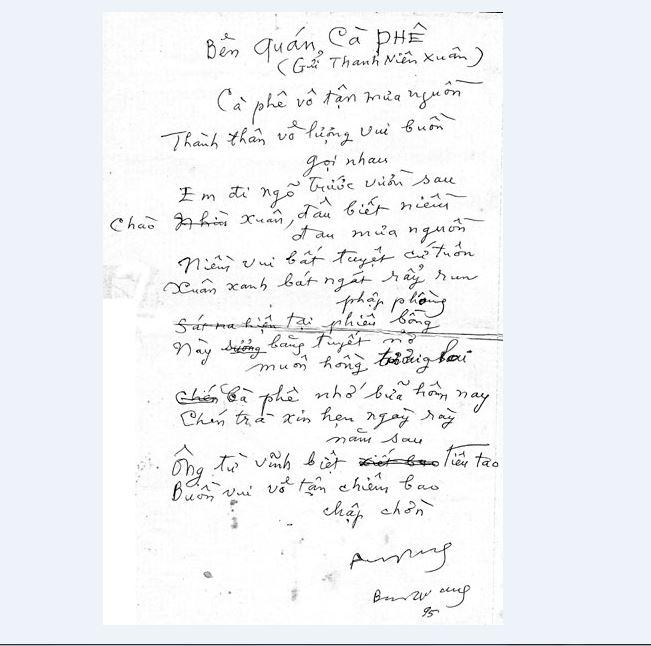 Bên Quán Cà PHÊ
(Gửi Thanh Niên Xuân)
Cà phê vô tận mưa nguồn
Thành thân vô lượng vui buồn
gọi nhau
Em đi ngõ trước vườn sau
Chào xuân, đâu biết niềm
đau mưa nguồn
Niềm vui bất tuyệt cứ tuôn
Xuân xanh bát ngát rẩy run
phập phồng
Sát na hiện tại phiêu bồng
Này băng tuyết nở
muôn hồng
Cà phê nhớ bữa hôm nay
Chén trà xin hẹn ngày rày
năm sau
Ông từ vĩnh biệt Tiên Tao
Buồn vui vô tận chiêm bao
chập chờn
95